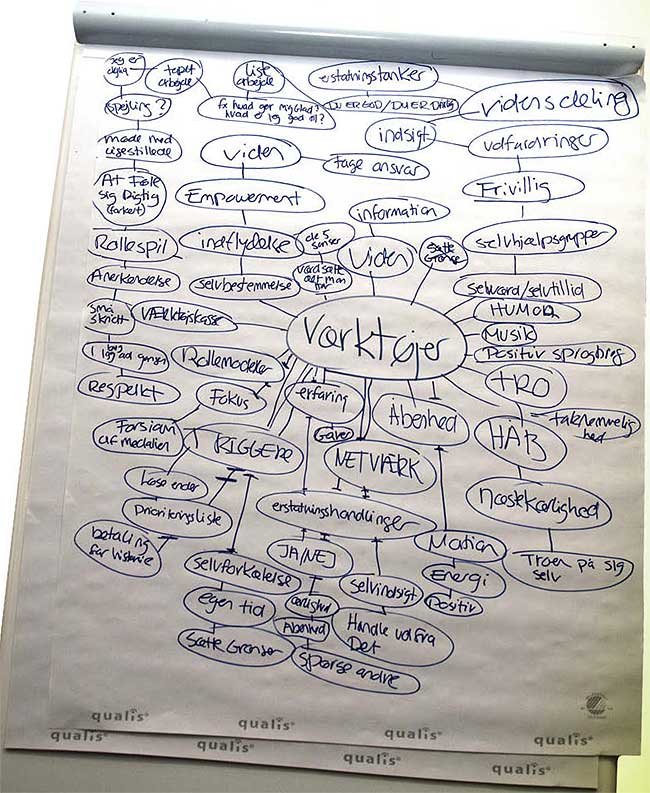 tapet
arbejde
liste
arbejde
erstatningstanker
DU ER GOD / DU ER Dårlig
Vidensdeling
spejling?
fx hvad gør mig glad?
hvad er jeg god til?
indsigt
udfordringer
møde med
ligestillede
viden
tage ansvar
At Føle
sig Digtig
(forkert)
Empowerment
information
Frivillig
Rollespil
indflydelse
de 5
sanser
Viden
sætte
Grænse
selvhjælpsgrupper
Anerkendelse
selvbestemmelse
værdsætte
det man
har
selvværd/selvtillid
små
skridt
Værktøjskasse
Værktøjer
HUMOR
Musik
Positiv sprogbrug
1 ting ad gangen
Rollemodeler
TRO
Respekt
Fokus
erfaring
Åbenhed
taknemmelig
hed
Forsiam
af medalien
TRIGGERE
Gaver
HÅB
NETVÆRK
Løse ender
Prioriteringsliste
erstatningshandlinger
næstekærlighed
betaling
for historie
selvforkælelse
JA/NEJ
Motion
Troen på sig
selv
selvindsigt
Energi
egen tid
ærlighed
Positiv
Åbenhed
Handle ud fra
Det
Sætte Grænser
Spørge andre
qualis
qualis
qualis
qualis
qualis
qualis
qualis
qualis